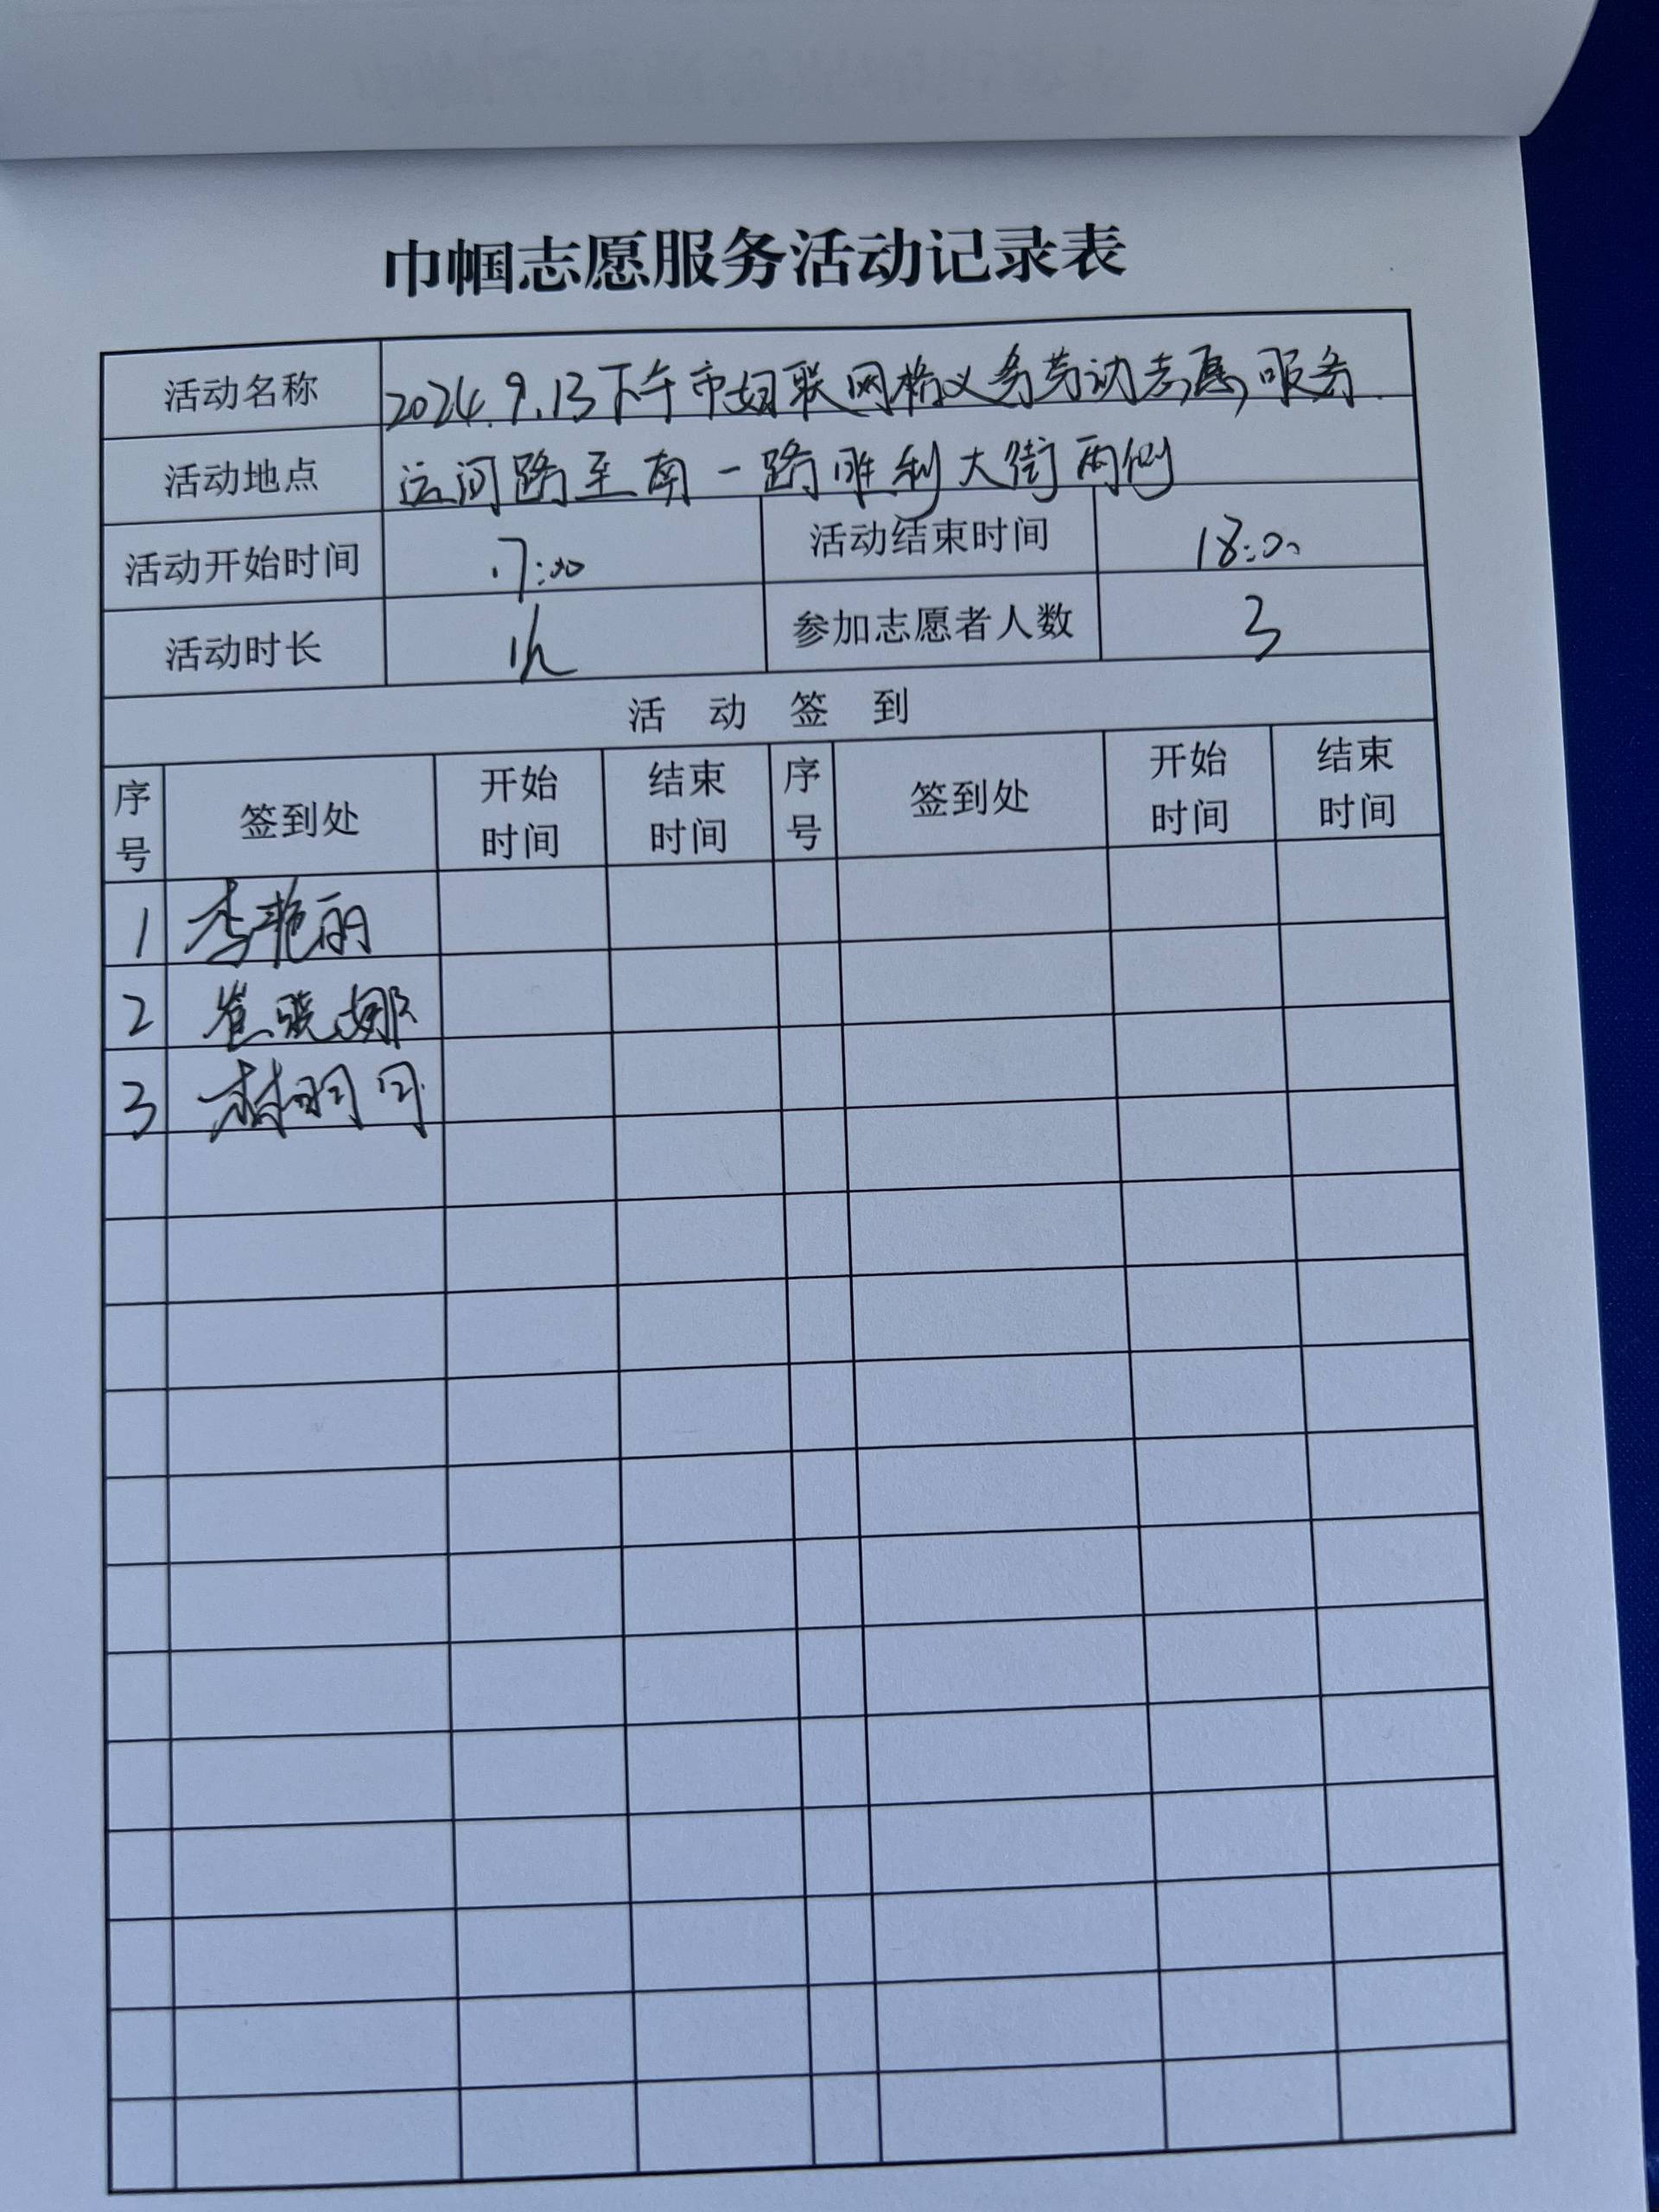 巾帼志愿服务活动记录表
活动名称 2024.9.13下午市妇联网格义务劳动志愿服务
活动地点 运河路至南一路胜利大街两侧
活动开始时间 17:00 活动结束时间 18:00
活动时长 1h 参加志愿者人数 3
活动签到
序号 签到处 开始时间 结束时间 序号 签到处 开始时间 结束时间
1 李艳丽
2 崔晓娜
3 林明月